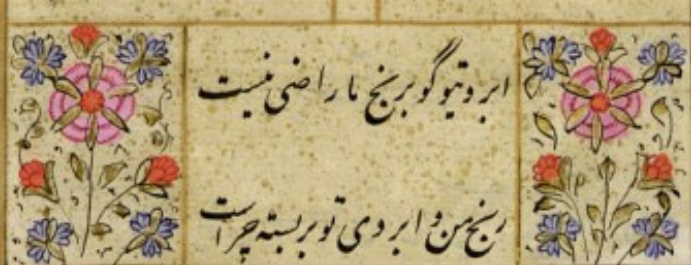 ابر و تیو گو برنج ما راضی نیست
رنج من و ابر دی تو بربسته چراست